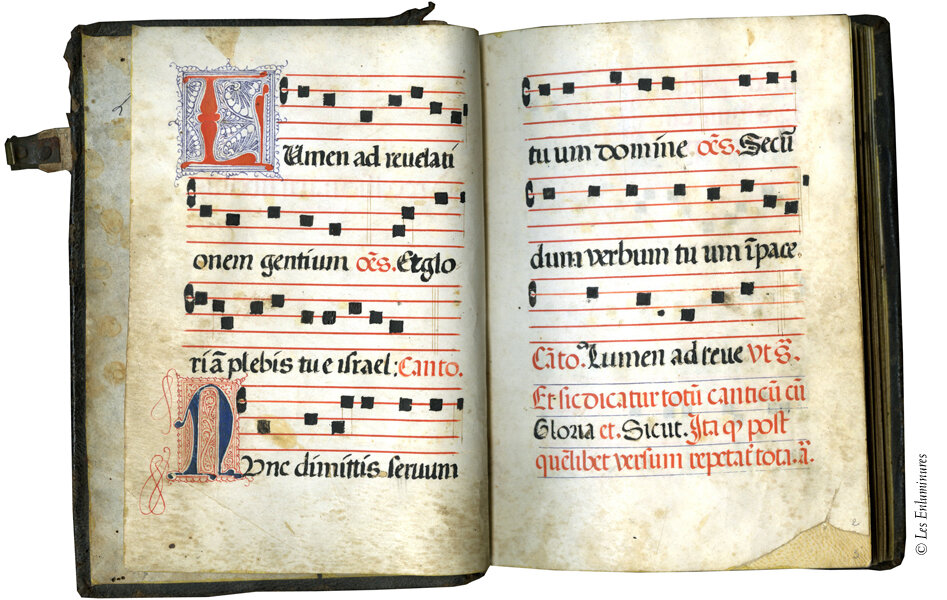 LUmen ad reuelati
onem gentium oēs. Et glo
riā plebis tu e israel: Canto.
NVnc dimittis seruum
tu um domine oēs. Secū
dum verbum tu um ī pace
Cāto. Lumen ad reue vt s̄.
Et sic dicatur totū canticū cū
Gloria et. Sicut. Ita q̱ post
quēlibet versum repetat̄ tota. ā.
© Les Enluminures